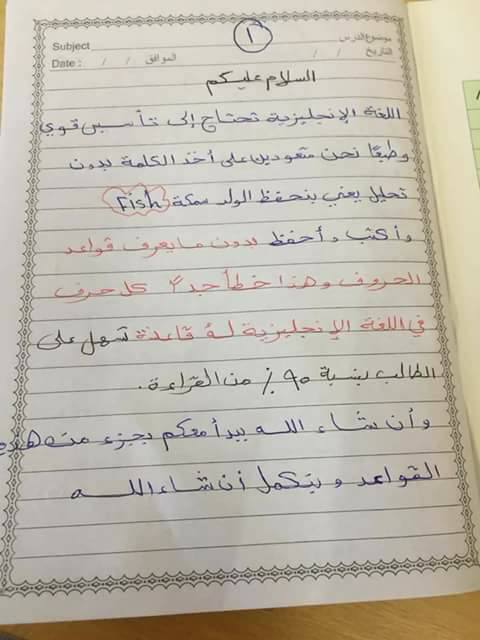 ١
Subject موضوع الدرس
Date : / / الموافق / / التاريخ
السلام عليكم
اللغة الإنجليزية تحتاج إلى تأسيس قوي
وطبعًا نحن متعودين على أخذ الكلمة بدون
تحليل يعني بنحفظ الولد سمكة Fish
وأكتب وأحفظ بدون ما يعرف قواعد
الحروف وهذا خطأ جدًا كل حرف
في اللغة الإنجليزية له قاعدة تسهل على
الطالب بنسبة ٩٠٪ من القراءة.
وأن شاء الله يبدأ معكم بجزء من هذه
القواعد و يتكمل أن شاء الله